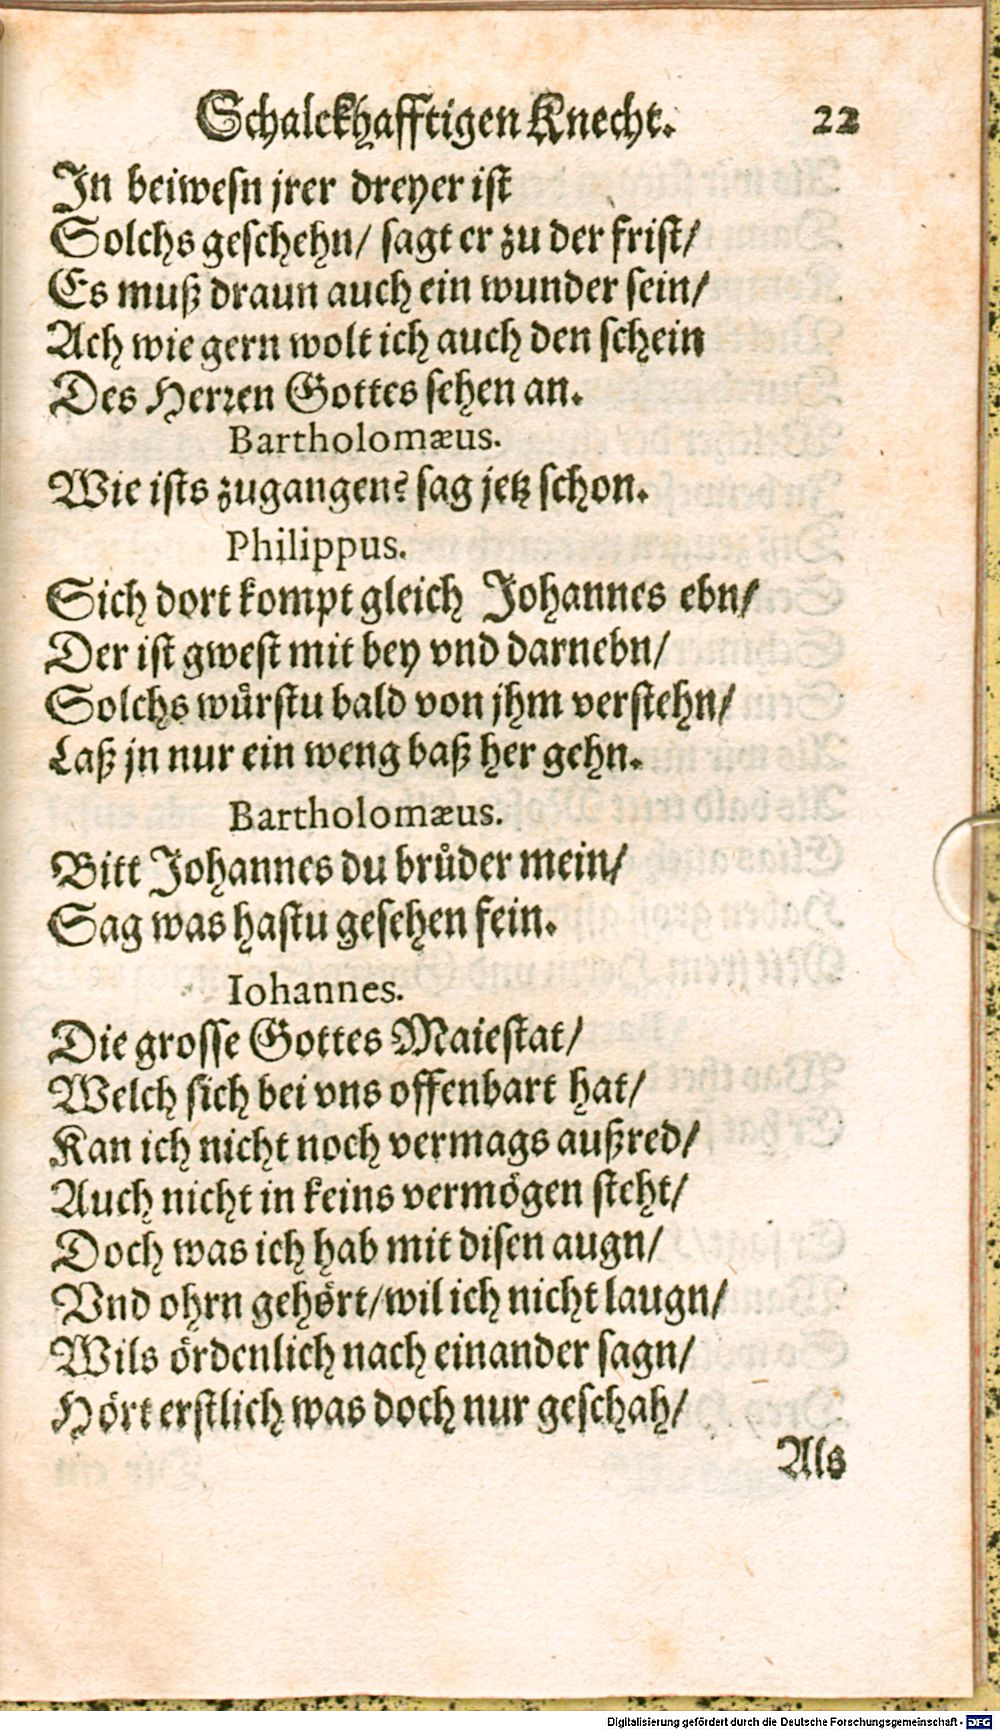 Schalckhafftigen Knecht. 22
In beiwesn jrer dreyer ist
Solchs geschehn/ sagt er zu der frist/
Es muß draun auch ein wunder sein/
Ach wie gern wolt ich auch den schein
Des Herren Gottes sehen an.
Bartholomæus.
Wie ists zugangen? sag jetz schon.
Philippus.
Sich dort kompt gleich Johannes ebn/
Der ist gwest mit bey vnd darnebn/
Solchs wuͤrstu bald von jhm verstehn/
Laß jn nur ein weng baß her gehn.
Bartholomæus.
Bitt Johannes du bruͦder mein/
Sag was hastu gesehen fein.
Iohannes.
Die grosse Gottes Maiestat/
Welch sich bei vns offenbart hat/
Kan ich nicht noch vermags außred/
Auch nicht in keins vermoͤgen steht/
Doch was ich hab mit disen augn/
Vnd ohrn gehoͤrt/ wil ich nicht laugn/
Wils oͤrdenlich nach einander sagn/
Hoͤrt erstlich was doch nur geschah/
Als
Digitalisierung gefördert durch die Deutsche Forschungsgemeinschaft - DFG